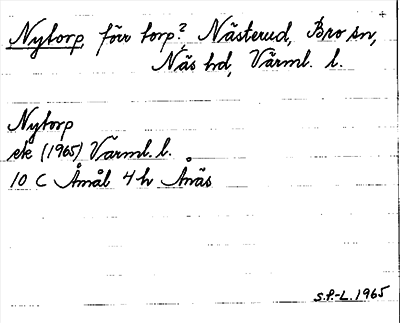 Nytorp, förr torp?, Nästerud, Bro sn,
Näs hd, Värml. l.
Nytorp
ek (1965) Värml. l.
10 C Åmål 4 h Ånäs
S.P.-L. 1965